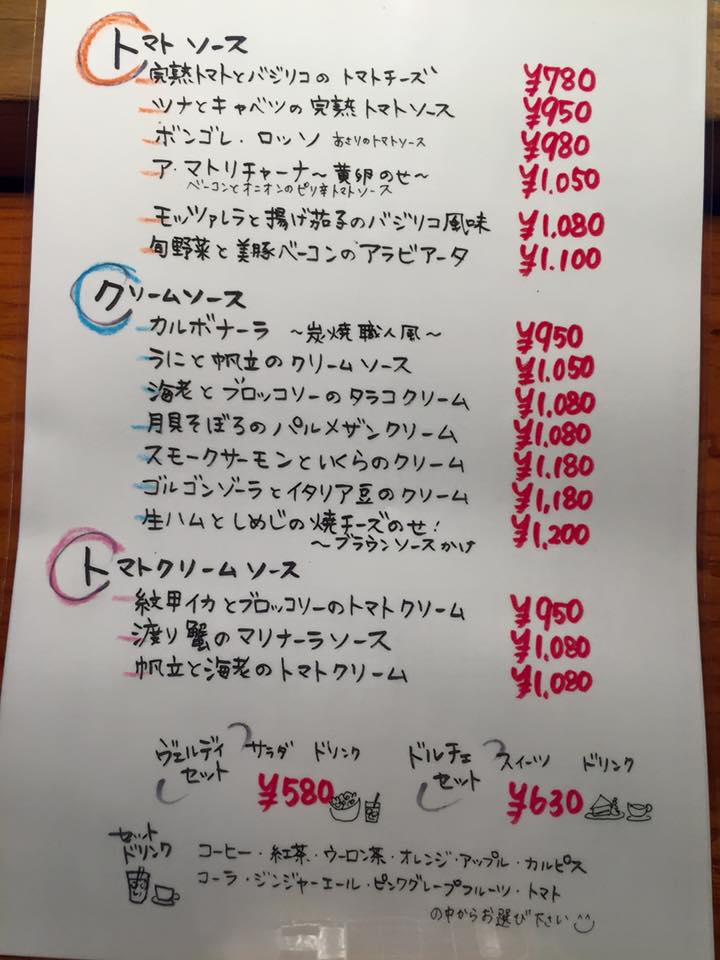 トマト ソース
完熟トマトとバジリコの トマトチーズ ¥780
ツナとキャベツの完熟トマトソース ¥950
ボンゴレ・ロッソ あさりのトマトソース ¥980
ア・マトリチャーナ〜黄卵のせ〜 ¥1.050
ベーコンとオニオンのピリ辛トマトソース
モッツァレラと揚げ茄子のバジリコ風味 ¥1.080
旬野菜と美豚ベーコンのアラビアータ ¥1.100
クリームソース
カルボナーラ 〜炭焼職人風〜 ¥950
うにと帆立のクリームソース ¥1.050
海老とブロッコソーのタラコクリーム ¥1.080
月見そぼろのパルメザンクリーム ¥1.080
スモークサーモンといくらのクリーム ¥1.180
ゴルゴンゾーラとイタリア豆のクリーム ¥1,180
生ハムとしめじの焼チーズのせ! ¥1,200
〜ブラウンソースかけ
トマトクリームソース
紋甲イカとブロッコリーのトマトクリーム ¥950
渡り蟹のマリナーラソース ¥1,080
帆立と海老のトマトクリーム ¥1,080
ヴェルディセット サラダ ドリンク ¥580
ドルチェセット スイーツ ドリンク ¥630
セットドリンク
コーヒー・紅茶・ウーロン茶・オレンジ・アップル・カルピス
コーラ・ジンジャーエール・ピンクグレープフルーツ・トマト
の中からお選び下さい